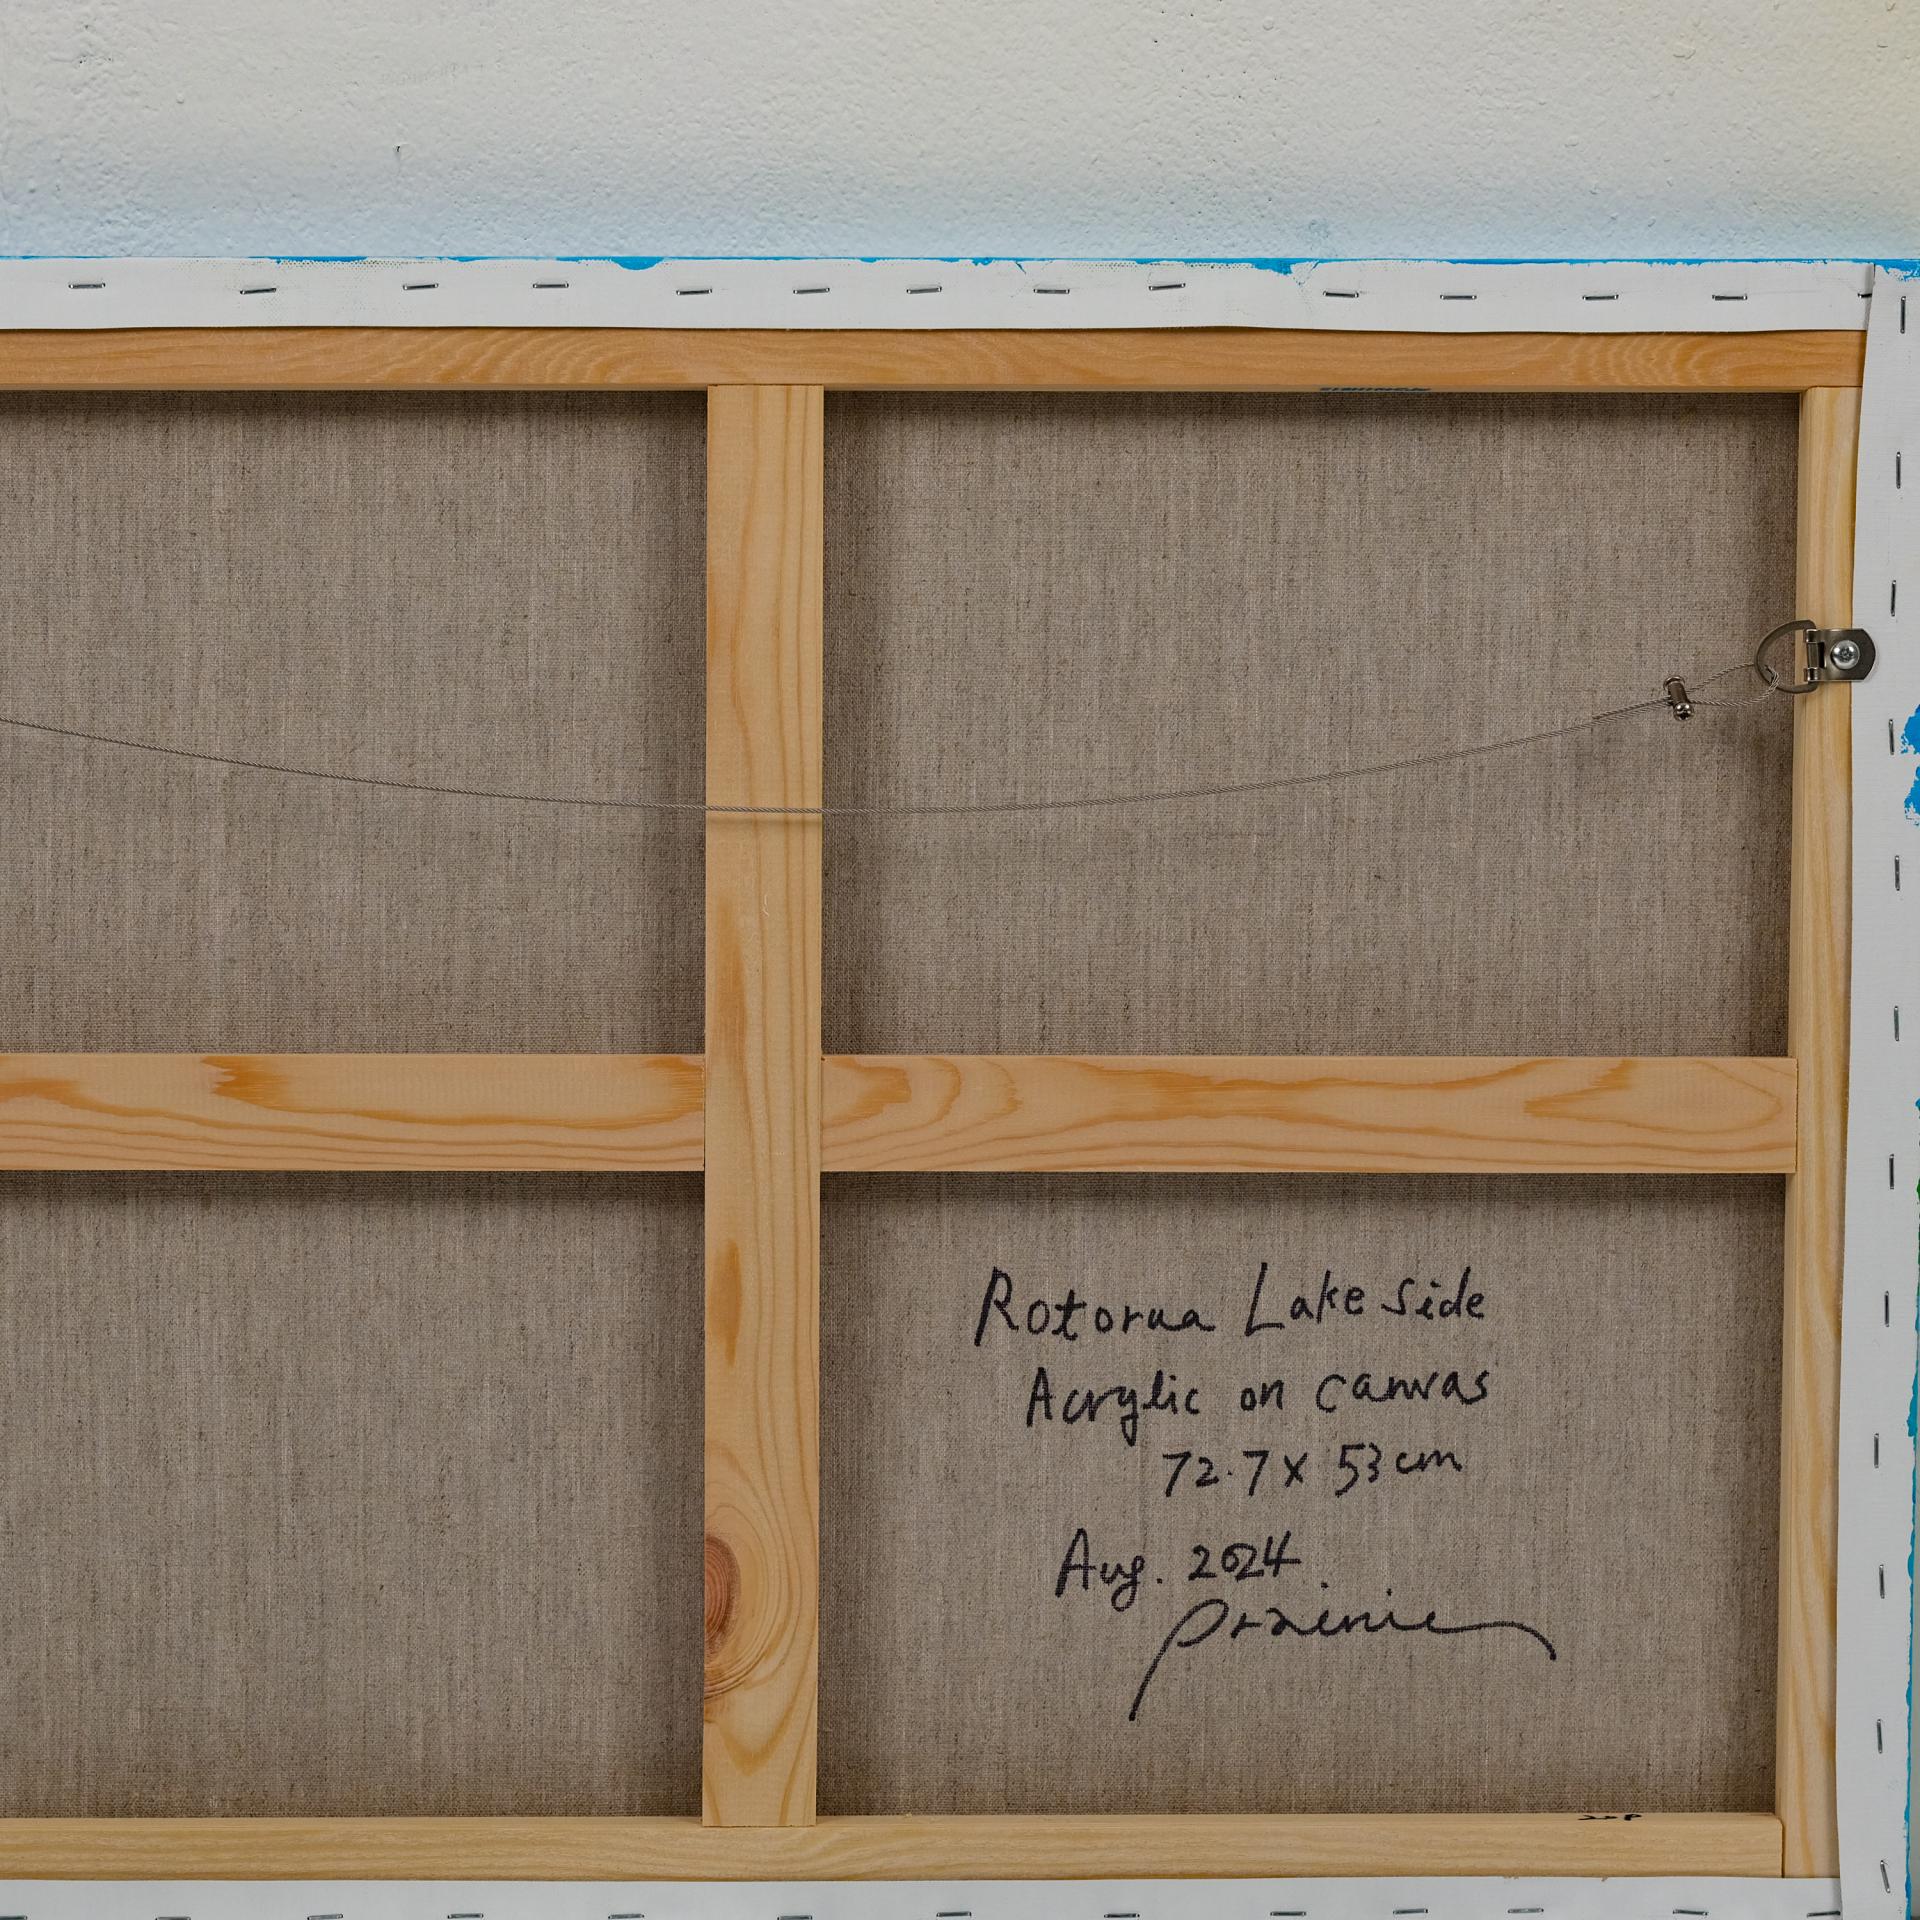 Rotorua Lake Side
Acrylic on canvas
72.7 x 53 cm
Aug. 2024
prairie